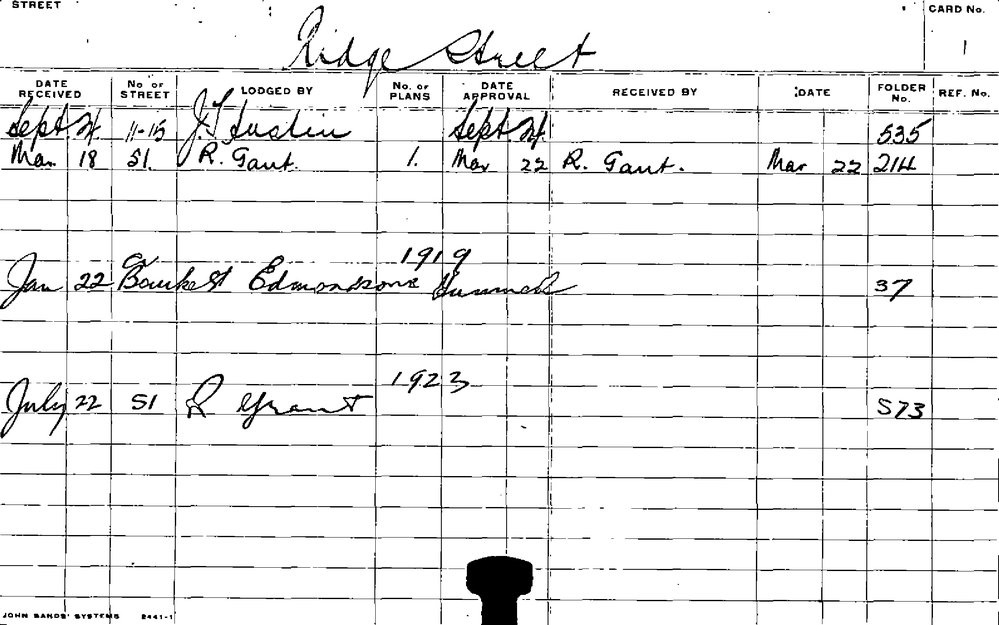 STREET CARD No.
Ridge Street 1
DATE RECEIVED No OF STREET LODGED BY No. OF PLANS DATE APPROVAL RECEIVED BY DATE FOLDER No. REF. No.
Sept. 11-15 J. Sept. 535
Mar. 18 51. R. Gant. 1. Mar 22 R. Gant. Mar 22 214
1919
Jan 22 Bourke St Edmondsons 37
1923
July 22 51 R Grant 573
JOHN SANDS' SYSTEMS 2441-1